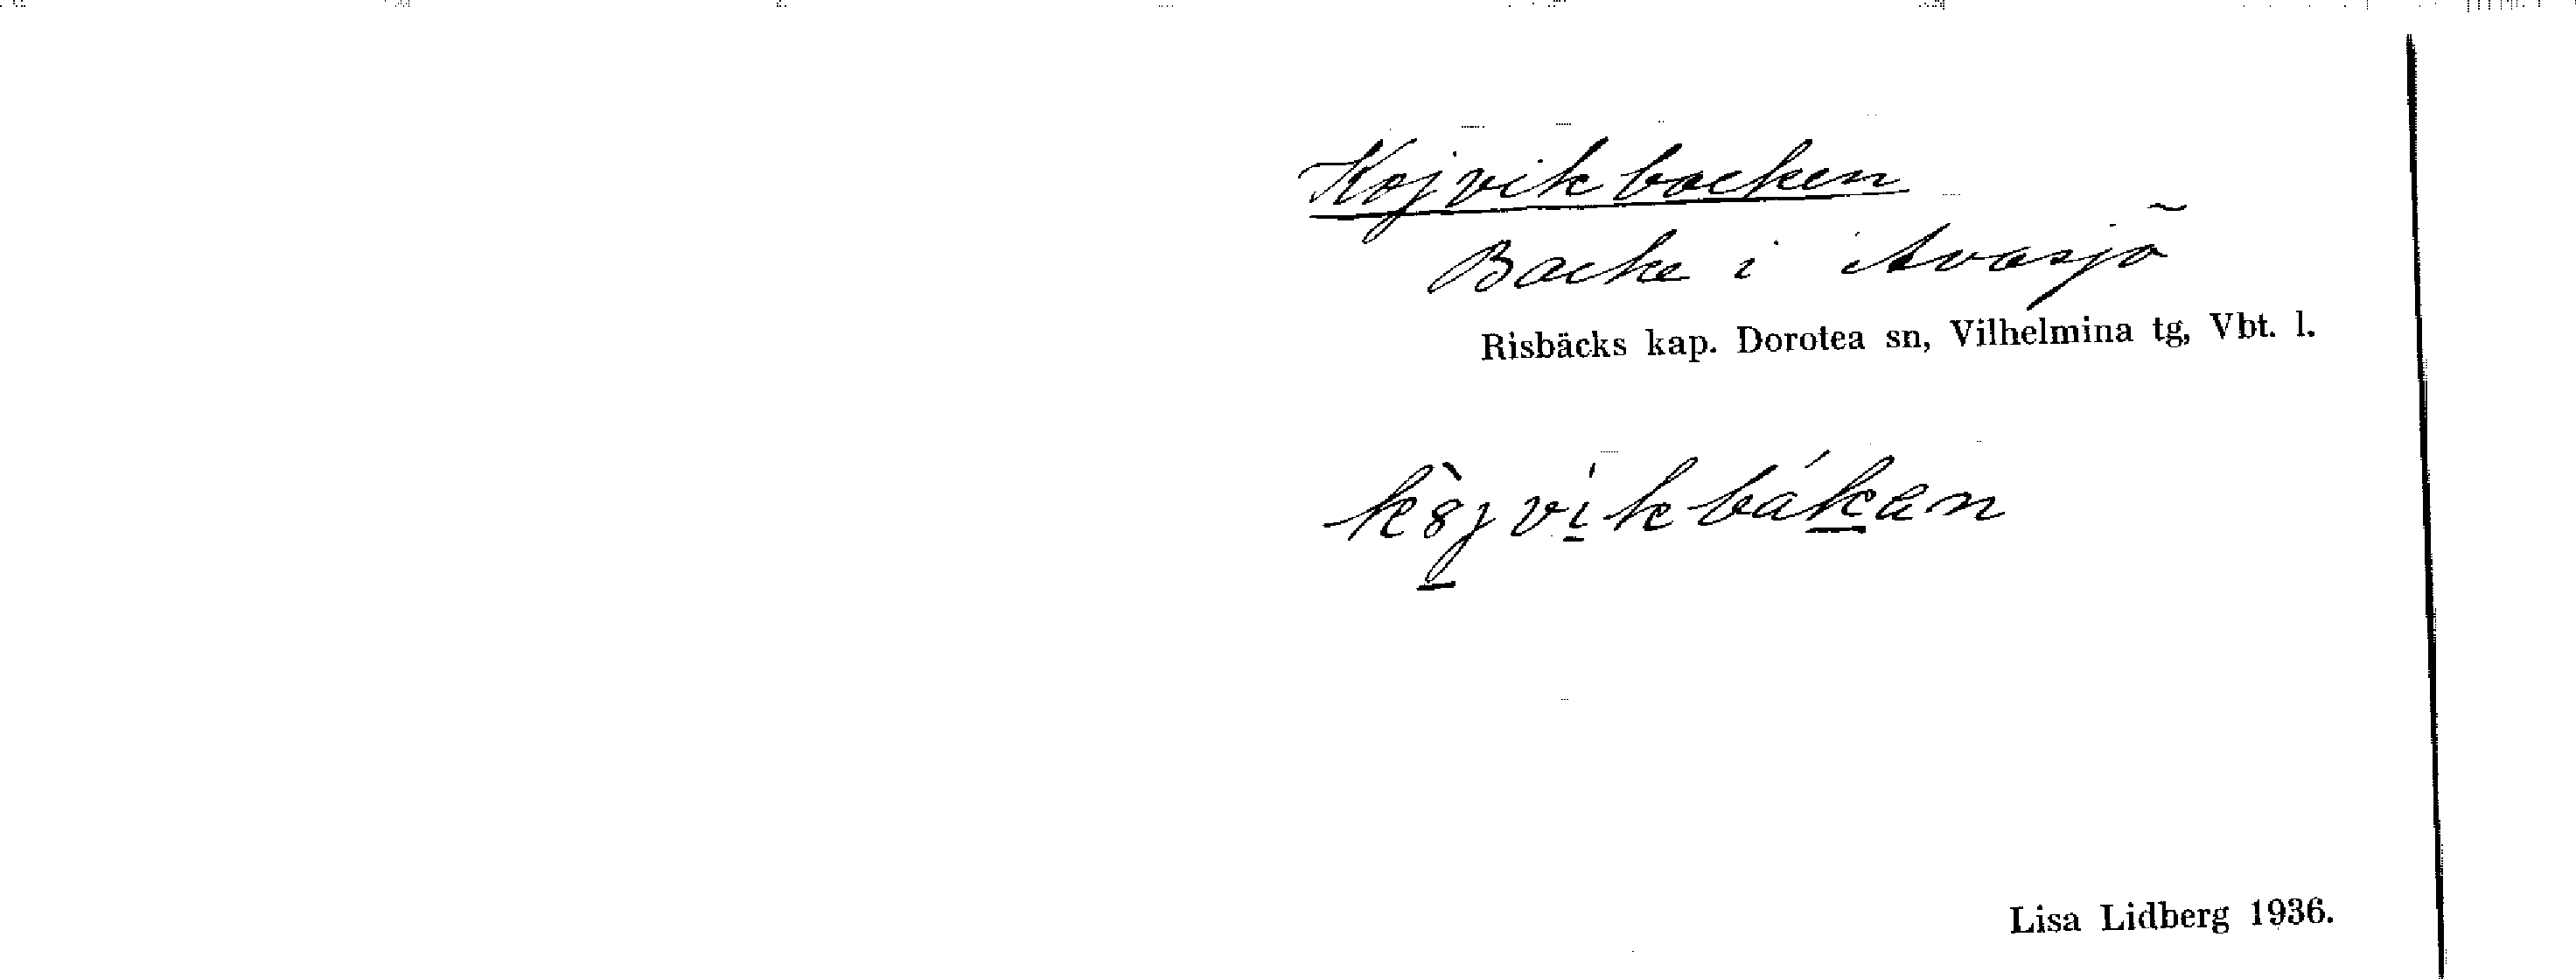 Kojvikbacken
Backe i Avasjö
Risbäcks kap. Dorotea sn, Vilhelmina tg, Vbt. l.
k8̀jvikbákan
Lisa Lidberg 1936.